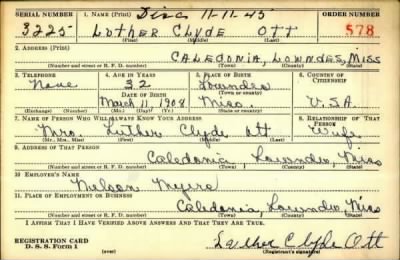 SERIAL NUMBER 1. NAME (Print) Disc 11-11-45 ORDER NUMBER
3225 LUTHER CLYDE OTT 578
(First) (Middle) (Last)
2. ADDRESS (Print)
CALEDONIA, LOWNDES, MISS
(Number and street or R. F. D. number) (Town) (County) (State)
3. TELEPHONE 4. AGE IN YEARS 5. PLACE OF BIRTH 6. COUNTRY OF CITIZENSHIP
None 32 Lowndes
DATE OF BIRTH (Town or county)
March 11, 1908 Miss. U.S.A.
(Exchange) (Number) (Mo.) (Day) (Yr.) (State or country)
7. NAME OF PERSON WHO WILL ALWAYS KNOW YOUR ADDRESS 8. RELATIONSHIP OF THAT PERSON
Mrs. Luther Clyde Ott Wife
(Mr., Mrs., Miss) (First) (Middle) (Last)
9. ADDRESS OF THAT PERSON
Caledonia, Lowndes, Miss
(Number and street or R. F. D. number) (Town) (County) (State)
10. EMPLOYER'S NAME
Nelson Myers
11. PLACE OF EMPLOYMENT OR BUSINESS
Caledonia, Lowndes, Miss
(Number and street or R. F. D. number) (Town) (County) (State)
I AFFIRM THAT I HAVE VERIFIED ABOVE ANSWERS AND THAT THEY ARE TRUE.
REGISTRATION CARD
D. S. S. Form 1 Luther Clyde Ott
(over) (Registrant's signature)